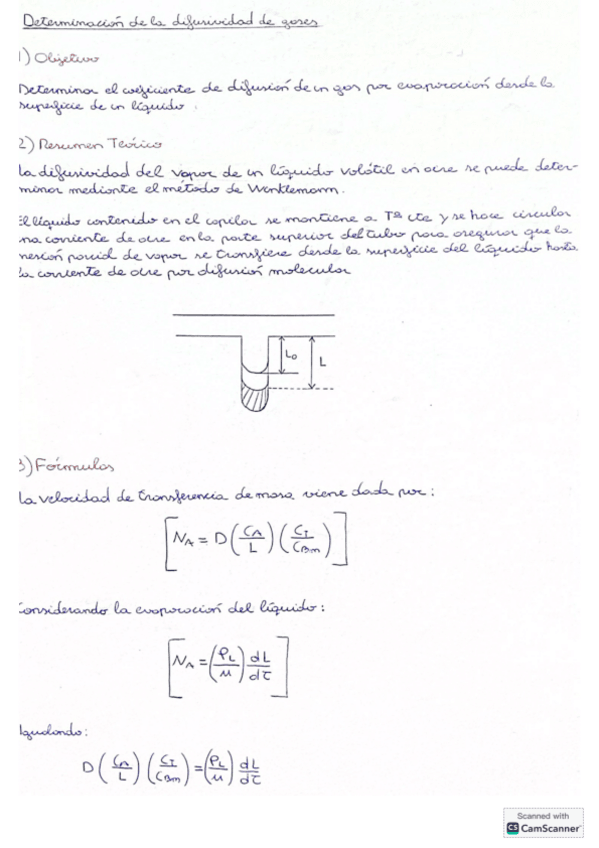 Determinación de la difusividad de gases
1) Objetivo
Determinar el coeficiente de difusión de un gas por evaporación desde la
superficie de un líquido.
2) Resumen Teórico
La difusividad del vapor de un líquido volátil en aire se puede deter-
minar mediante el método de Wenklemann.
El líquido contenido en el capilar se mantiene a Tª cte y se hace circular
una corriente de aire en la parte superior del tubo para asegurar que la
presión parcial de vapor se transfiere desde la superficie del líquido hasta
la corriente de aire por difusión molecular
L₀
L
3) Fórmulas
La velocidad de transferencia de masa viene dada por:
[N_A = D (C_A/L) (C_T/C_Bm)]
Considerando la evaporación del líquido:
[N_A = (ρ_L/M) dL/dτ]
Igualando:
D (C_A/L) (C_T/C_Bm) = (ρ_L/M) dL/dτ
Scanned with
CS CamScanner